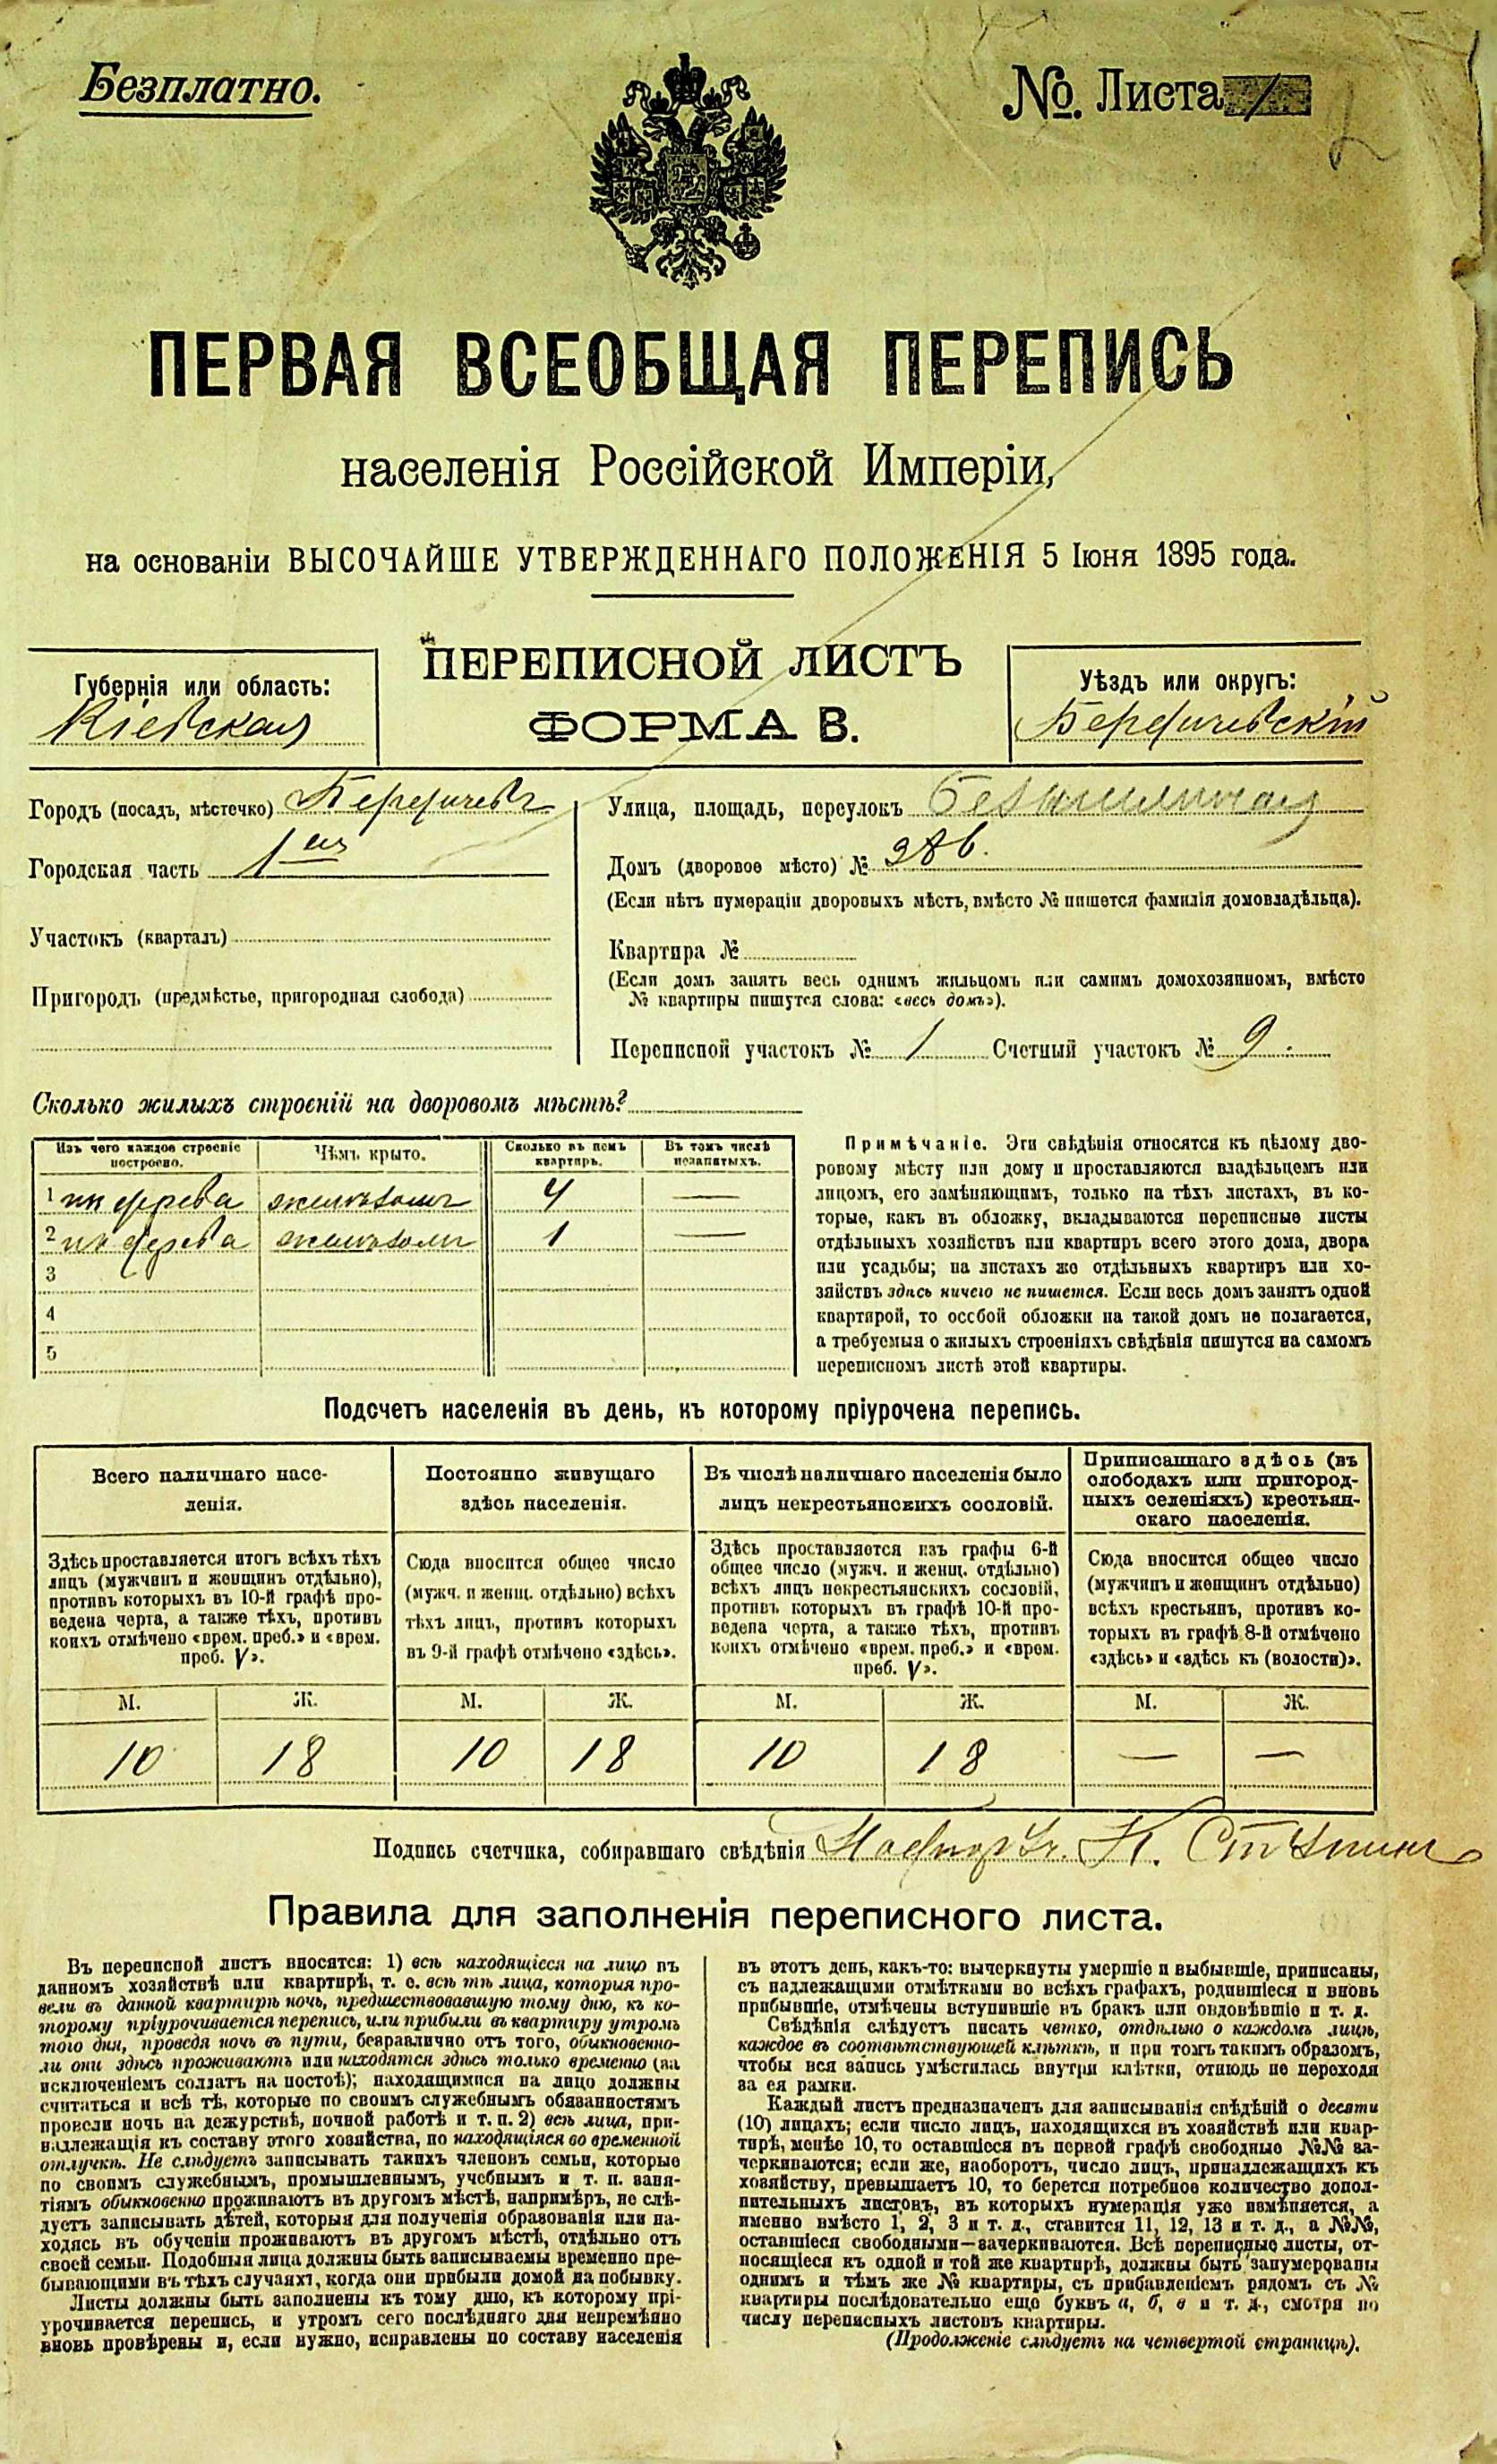 Безплатно.
№. Листа 1
2
ПЕРВАЯ ВСЕОБЩАЯ ПЕРЕПИСЬ
населенія Россійской Имперіи,
на основаніи ВЫСОЧАЙШЕ УТВЕРЖДЕННАГО ПОЛОЖЕНІЯ 5 Іюня 1895 года.
ПЕРЕПИСНОЙ ЛИСТЪ
ФОРМА В.
Губернія или область:
Кіевская
Уѣздъ или округъ:
Бердичевскій
Городъ (посадъ, мѣстечко) Бердичевъ
Городская часть 1ая
Участокъ (кварталъ)
Пригородъ (предмѣстье, пригородная слобода)
Улица, площадь, переулокъ
Домъ (дворовое мѣсто) №
(Если нѣтъ нумераціи дворовыхъ мѣстъ, вмѣсто № пишется фамилія домовладѣльца).
Квартира №
(Если домъ занятъ весь однимъ жильцомъ или самимъ домохозяиномъ, вмѣсто
№ квартиры пишутся слова: «весь домъ»).
Переписной участокъ № 1 Счетный участокъ № 9.
Сколько жилыхъ строеній на дворовомъ мѣстѣ?
Изъ чего каждое строеніе построено.
Чѣмъ крыто.
Сколько въ немъ квартиръ.
Въ томъ числѣ незанятыхъ.
1 изъ дерева желѣзомъ 4 —
2 изъ дерева желѣзомъ 1 —
3
4
5
Примѣчаніе. Эти свѣдѣнія относятся къ цѣлому дво-
ровому мѣсту или дому и проставляются владѣльцемъ или
лицомъ, его замѣняющимъ, только на тѣхъ листахъ, въ ко-
торые, какъ въ обложку, вкладываются переписные листы
отдѣльныхъ хозяйствъ или квартиръ всего этого дома, двора
или усадьбы; на листахъ же отдѣльныхъ квартиръ или хо-
зяйствъ здѣсь ничего не пишется. Если весь домъ занятъ одной
квартирой, то особой обложки на такой домъ не полагается,
а требуемыя о жилыхъ строеніяхъ свѣдѣнія пишутся на самомъ
переписномъ листѣ этой квартиры.
Подсчетъ населенія въ день, къ которому пріурочена перепись.
Всего наличнаго насе-
ленія.
Здѣсь проставляется итогъ всѣхъ тѣхъ
лицъ (мужчинъ и женщинъ отдѣльно),
противъ которыхъ въ 10-й графѣ про-
ведена черта, а также тѣхъ, противъ
коихъ отмѣчено «врем. преб.» и «врем.
преб. V».
Постоянно живущаго
здѣсь населенія.
Сюда вносится общее число
(мужч. и женщ. отдѣльно) всѣхъ
тѣхъ лицъ, противъ которыхъ
въ 9-й графѣ отмѣчено «здѣсь».
Въ числѣ наличнаго населенія было
лицъ некрестьянскихъ сословій.
Здѣсь проставляется изъ графы 6-й
общее число (мужч. и женщ. отдѣльно)
всѣхъ лицъ некрестьянскихъ сословій,
противъ которыхъ въ графѣ 10-й про-
ведена черта, а также тѣхъ, противъ
коихъ отмѣчено «врем. преб.» и «врем.
преб. V».
Приписаннаго здѣсь (въ
слободахъ или пригород-
ныхъ селеніяхъ) крестьян-
скаго населенія.
Сюда вносится общее число
(мужчинъ и женщинъ отдѣльно)
всѣхъ крестьянъ, противъ ко-
торыхъ въ графѣ 8-й отмѣчено
«здѣсь» и «здѣсь къ (волости)».
М. Ж. М. Ж. М. Ж. М. Ж.
10 18 10 18 10 18 — —
Подпись счетчика, собиравшаго свѣдѣнія
Правила для заполненія переписного листа.
Въ переписной листъ вносятся: 1) всѣ находящіеся на лицо въ
данномъ хозяйствѣ или квартирѣ, т. е. всѣ тѣ лица, которыя про-
вели въ данной квартирѣ ночь, предшествовавшую тому дню, къ ко-
торому пріурочивается перепись, или прибыли въ квартиру утромъ
того дня, проведя ночь въ пути, безразлично отъ того, обыкновенно-
ли они здѣсь проживаютъ или находятся здѣсь только временно (за
исключеніемъ солдатъ на постоѣ); находящимися на лицо должны
считаться и всѣ тѣ, которые по своимъ служебнымъ обязанностямъ
провели ночь на дежурствѣ, ночной работѣ и т. п. 2) всѣ лица, при-
надлежащія къ составу этого хозяйства, но находящіяся во временной
отлучкѣ. Не слѣдуетъ записывать такихъ членовъ семьи, которые
по своимъ служебнымъ, промышленнымъ, учебнымъ и т. п. заня-
тіямъ обыкновенно проживаютъ въ другомъ мѣстѣ, напримѣръ, не слѣ-
дуетъ записывать дѣтей, которыя для полученія образованія или на-
ходясь въ обученіи проживаютъ въ другомъ мѣстѣ, отдѣльно отъ
своей семьи. Подобныя лица должны быть записываемы временно пре-
бывающими въ тѣхъ случаяхъ, когда они прибыли домой на побывку.
Листы должны быть заполнены къ тому дню, къ которому прі-
урочивается перепись, и утромъ сего послѣдняго дня непремѣнно
вновь провѣрены и, если нужно, исправлены по составу населенія
въ этотъ день, какъ-то: вычеркнуты умершіе и выбывшіе, приписаны,
съ надлежащими отмѣтками во всѣхъ графахъ, родившіеся и вновь
прибывшіе, отмѣчены вступившіе въ бракъ или овдовѣвшіе и т. д.
Свѣдѣнія слѣдуетъ писать четко, отдѣльно о каждомъ лицѣ,
каждое въ соотвѣтствующей клѣткѣ, и при томъ такимъ образомъ,
чтобы вся запись умѣстилась внутри клѣтки, отнюдь не переходя
за ея рамки.
Каждый листъ предназначенъ для записыванія свѣдѣній о десяти
(10) лицахъ; если число лицъ, находящихся въ хозяйствѣ или квар-
тирѣ, менѣе 10, то оставшіеся въ первой графѣ свободные №№ за-
черкиваются; если же, наоборотъ, число лицъ, принадлежащихъ къ
хозяйству, превышаетъ 10, то берется потребное количество допол-
нительныхъ листовъ, въ которыхъ нумерація уже измѣняется, а
именно вмѣсто 1, 2, 3 и т. д., ставится 11, 12, 13 и т. д., а №№,
оставшіеся свободными—зачеркиваются. Всѣ переписные листы, от-
носящіеся къ одной и той же квартирѣ, должны быть занумерованы
однимъ и тѣмъ же № квартиры, съ прибавленіемъ рядомъ съ №
квартиры послѣдовательно еще буквъ а, б, в и т. д., смотря по
числу переписныхъ листовъ квартиры.
(Продолженіе слѣдуетъ на четвертой страницѣ).